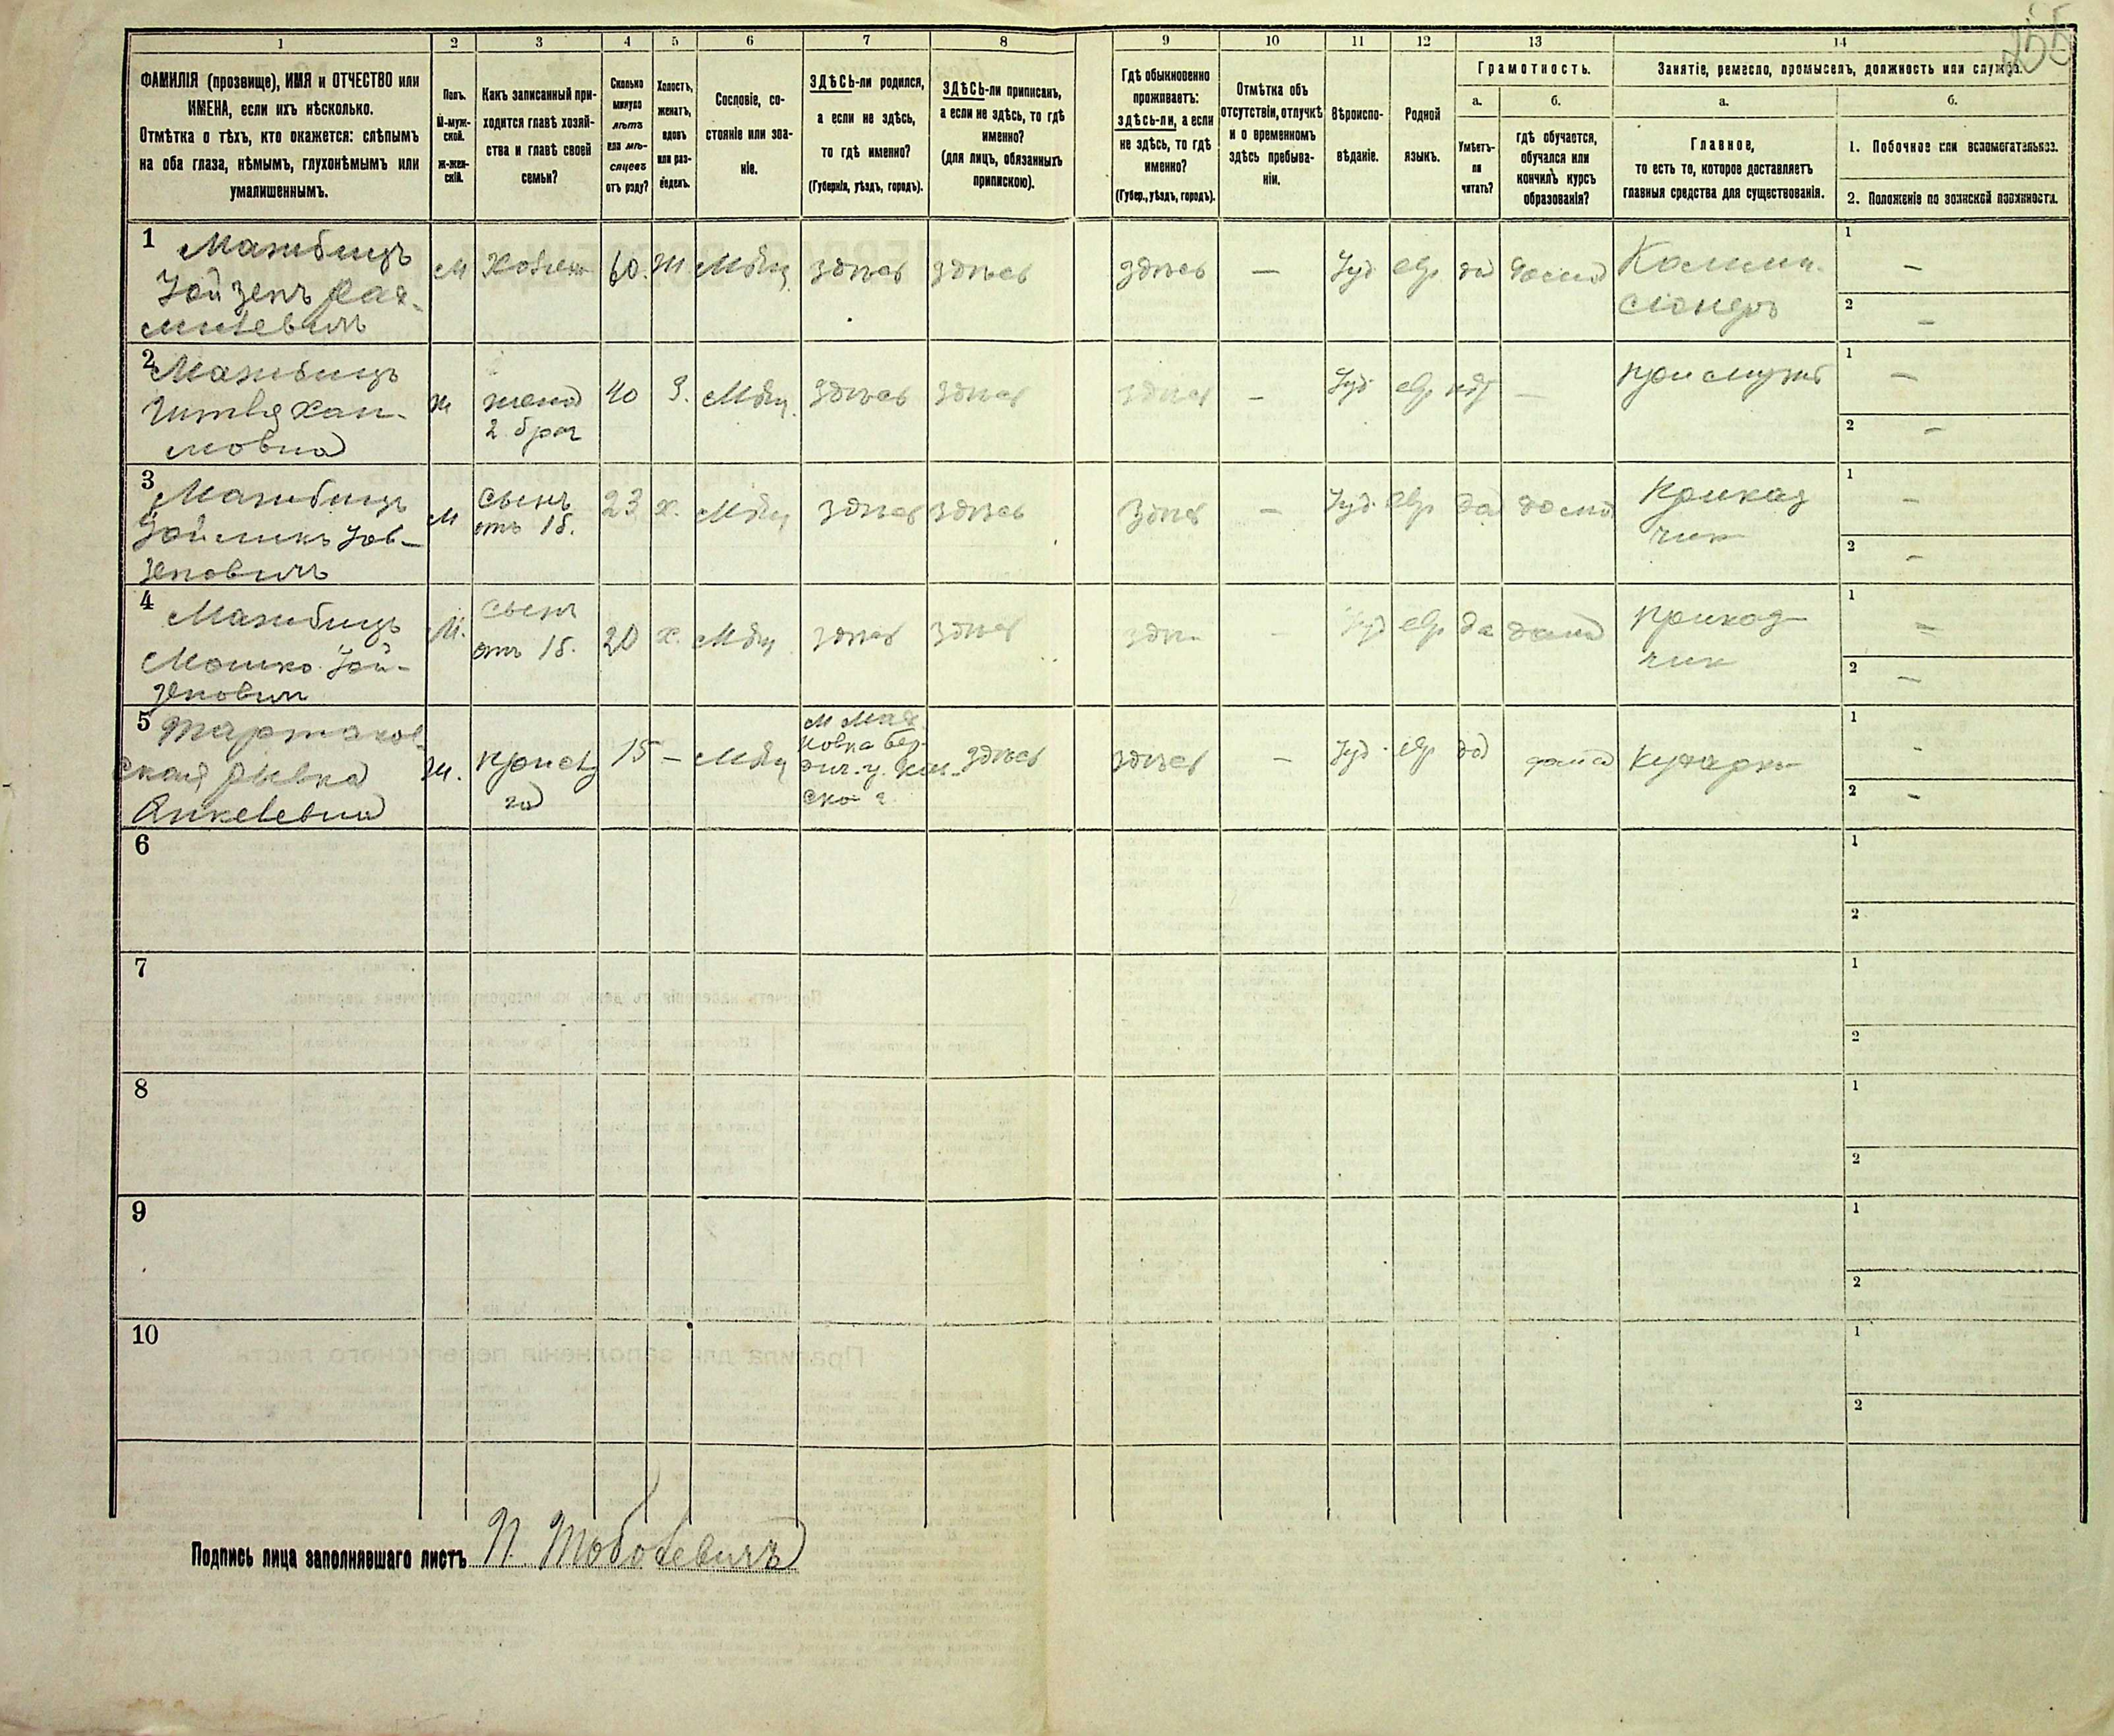 255
1 2 3 4 5 6 7 8 9 10 11 12 13 14
ФАМИЛІЯ (прозвище), ИМЯ и ОТЧЕСТВО или
ИМЕНА, если ихъ нѣсколько.
Отмѣтка о тѣхъ, кто окажется: слѣпымъ
на оба глаза, нѣмымъ, глухонѣмымъ или
умалишеннымъ.
Полъ.
М-муж-
ской.
ж-жен-
скій.
Какъ записанный при-
ходится главѣ хозяй-
ства и главѣ своей
семьи?
Сколько
минуло
лѣтъ
или мѣ-
сяцевъ
отъ роду?
Холостъ,
женатъ,
вдовъ
или раз-
веденъ.
Сословіе, со-
стояніе или зва-
ніе.
ЗДѢСЬ-ли родился,
а если не здѣсь,
то гдѣ именно?
(Губернія, уѣздъ, городъ).
ЗДѢСЬ-ли приписанъ,
а если не здѣсь, то гдѣ
именно?
(для лицъ, обязанныхъ
припискою).
Гдѣ обыкновенно
проживаетъ:
здѣсь-ли, а если
не здѣсь, то гдѣ
именно?
(Губер., уѣздъ, городъ).
Отмѣтка объ
отсутствіи, отлучкѣ
и о временномъ
здѣсь пребыва-
ніи.
Вѣроиспо-
вѣданіе.
Родной
языкъ.
Грамотность.
а.
Умѣетъ-
ли
читать?
б.
гдѣ обучается,
обучался или
кончилъ курсъ
образованія?
Занятіе, ремесло, промыселъ, должность или служба.
а.
Главное,
то есть то, которое доставляетъ
главныя средства для существованія.
б.
1. Побочное или вспомогательное.
2. Положеніе по воинской повинности.
1
М
60
Ж
Мѣщ
здѣсь
здѣсь
здѣсь
—
Іуд
евр
да
дома
Коммис-
сіонеръ
1 —
2 —
2
Ж
жена
2 брач
40
З.
Мѣщ.
здѣсь
здѣсь
здѣсь
—
Іуд
евр
нѣт
—
1 —
2 —
3
М
сынъ
отъ 1б.
23
х.
Мѣщ
здѣсь
здѣсь
здѣсь
—
Іуд
евр
да
дома
приказ
чик
1 —
2 —
4
Мошко Іой-
зеповичъ
М.
сынъ
отъ 1б.
20
х.
Мѣщ
здѣсь
здѣсь
—
евр
да
дома
приказ
чик
1 —
2 —
5 Тартаков-
ская Рывка
Янкелевна
Ж.
прислу
га
15
—
Мѣщ
здѣсь
здѣсь
—
Іуд
евр
да
дома
кухарка
1 —
2 —
6
1
2
7
1
2
8
1
2
9
1
2
10
1
2
Подпись лица заполнявшаго листъ П. Тоболевичъ